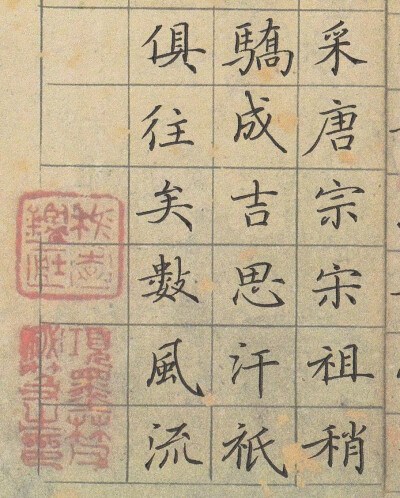 采唐宗宋祖稍
驕成吉思汗祇
俱往矣數風流